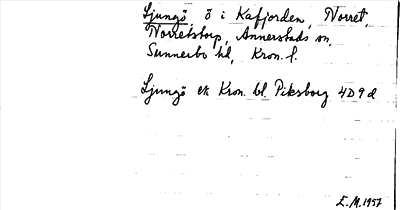 Ljungö, ö i Kafjorden, Norret,
Norretstorp, Annerstads sn,
Sunnerbo hd, Kron. l.
Ljungö ek Kron. bl Piksborg 4D9d
E.M. 1957